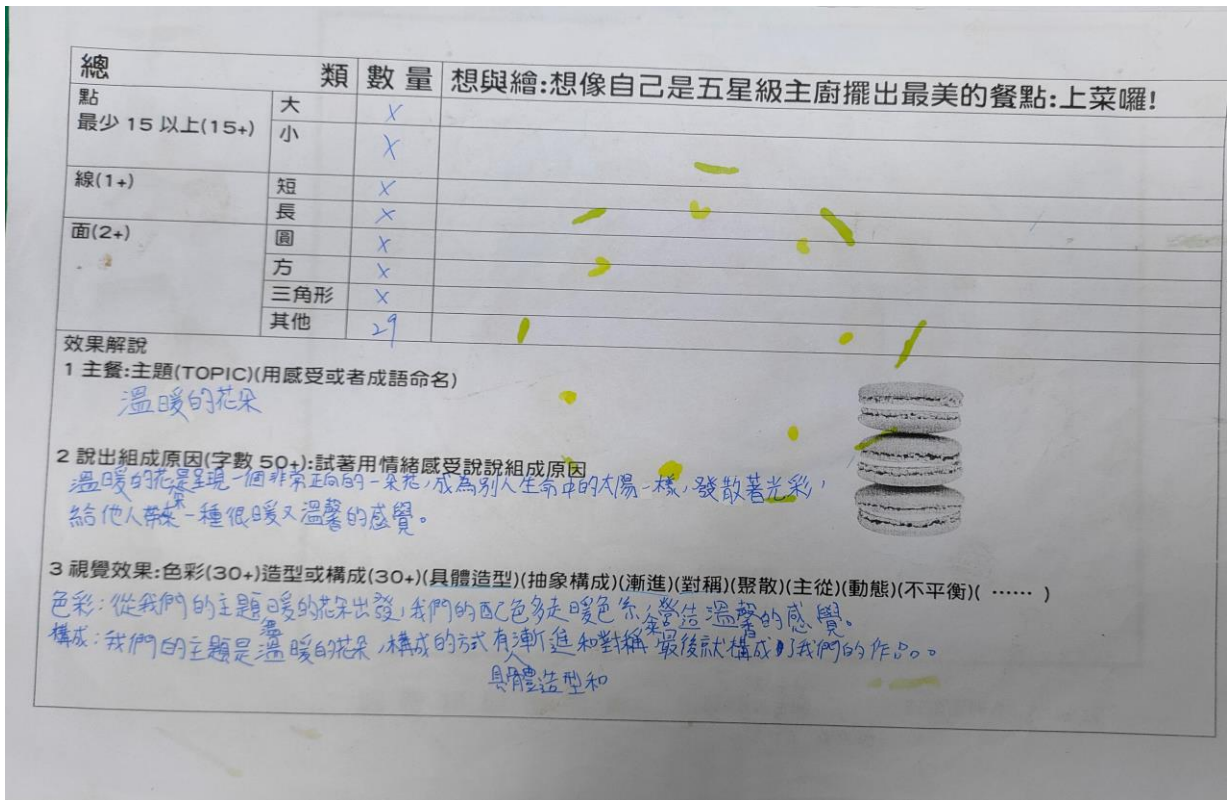 總類 數量 想與繪:想像自己是五星級主廚擺出最美的餐點:上菜囉!
點 大 X
最少 15 以上(15+) 小 X
線(1+) 短 X
長 X
面(2+) 圓 X
方 X
三角形 X
其他 29
效果解說
1 主餐:主題(TOPIC)(用感受或者成語命名)
溫暖的花朵
2 說出組成原因(字數 50+):試著用情緒感受說說組成原因
溫暖的花朵是呈現一個非常正向的一朵花,成為別人生命中的太陽一樣,發散著光彩,
給他人帶來一種很暖又溫馨的感覺。
3 視覺效果:色彩(30+)造型或構成(30+)(具體造型)(抽象構成)(漸進)(對稱)(聚散)(主從)(動態)(不平衡)( …… )
色彩:從我們的主題暖的花朵出發,我們的配色多走暖色系,營造溫馨的感覺。
構成:我們的主題是溫暖的花朵,構成的方式有漸進和對稱 最後就構成了我們的作品。
具體造型和